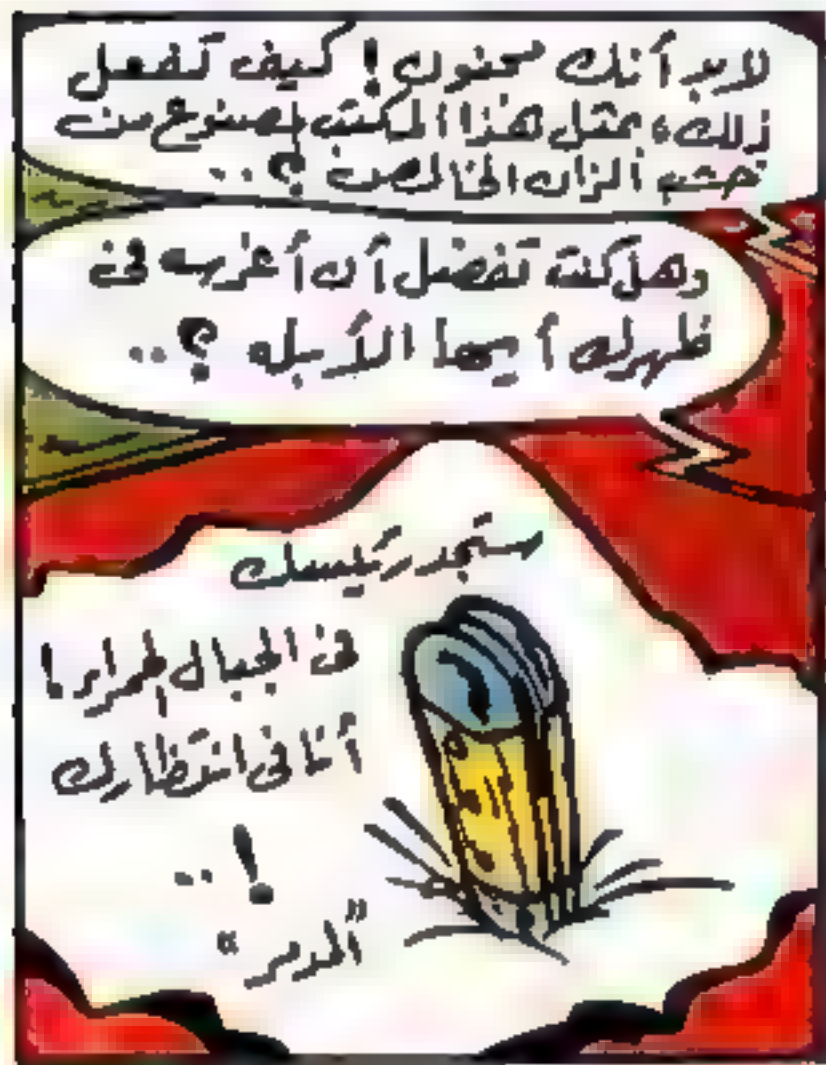 لابد أنك مجنون! كيف تفعل
ذلك، بمثل هذا المكتب المصنوع من
خشب الزان الخالص؟..
وهل كنت تفضل أن أغرسه فى
ظهرك أيها الأبله؟..
ستجد رئيسك
فى الجبال الحمراء!
أنا فى انتظارك
!..
"المدمر"